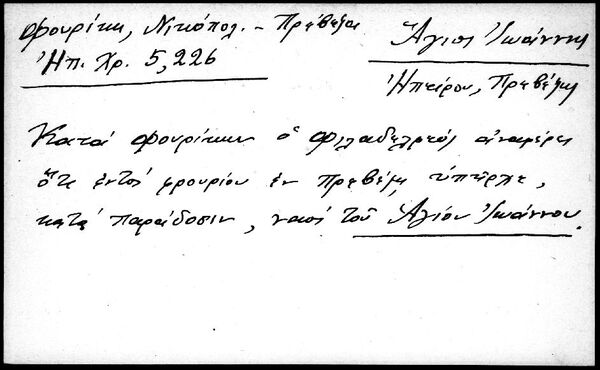 Φουρίκη, Νικόπολ. - Πρέβεζα
Ἠπ. Χρ. 5, 226
Ἅγιος Ἰωάννης
Ἠπείρου, Πρεβέζης
Κατά Φουρίκην ὁ Φιλαδελφεύς ἀναφέρει
ὅτι ἐντός φρουρίου ἐν Πρεβέζῃ ὑπῆρχε,
κατά παράδοσιν, ναός τοῦ Ἁγίου Ἰωάννου.